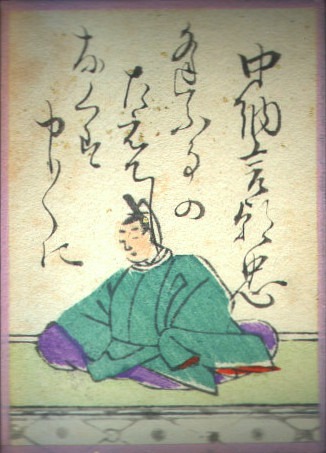 中納言朝忠
あふことの
たえてし
なくは
中〳〵に